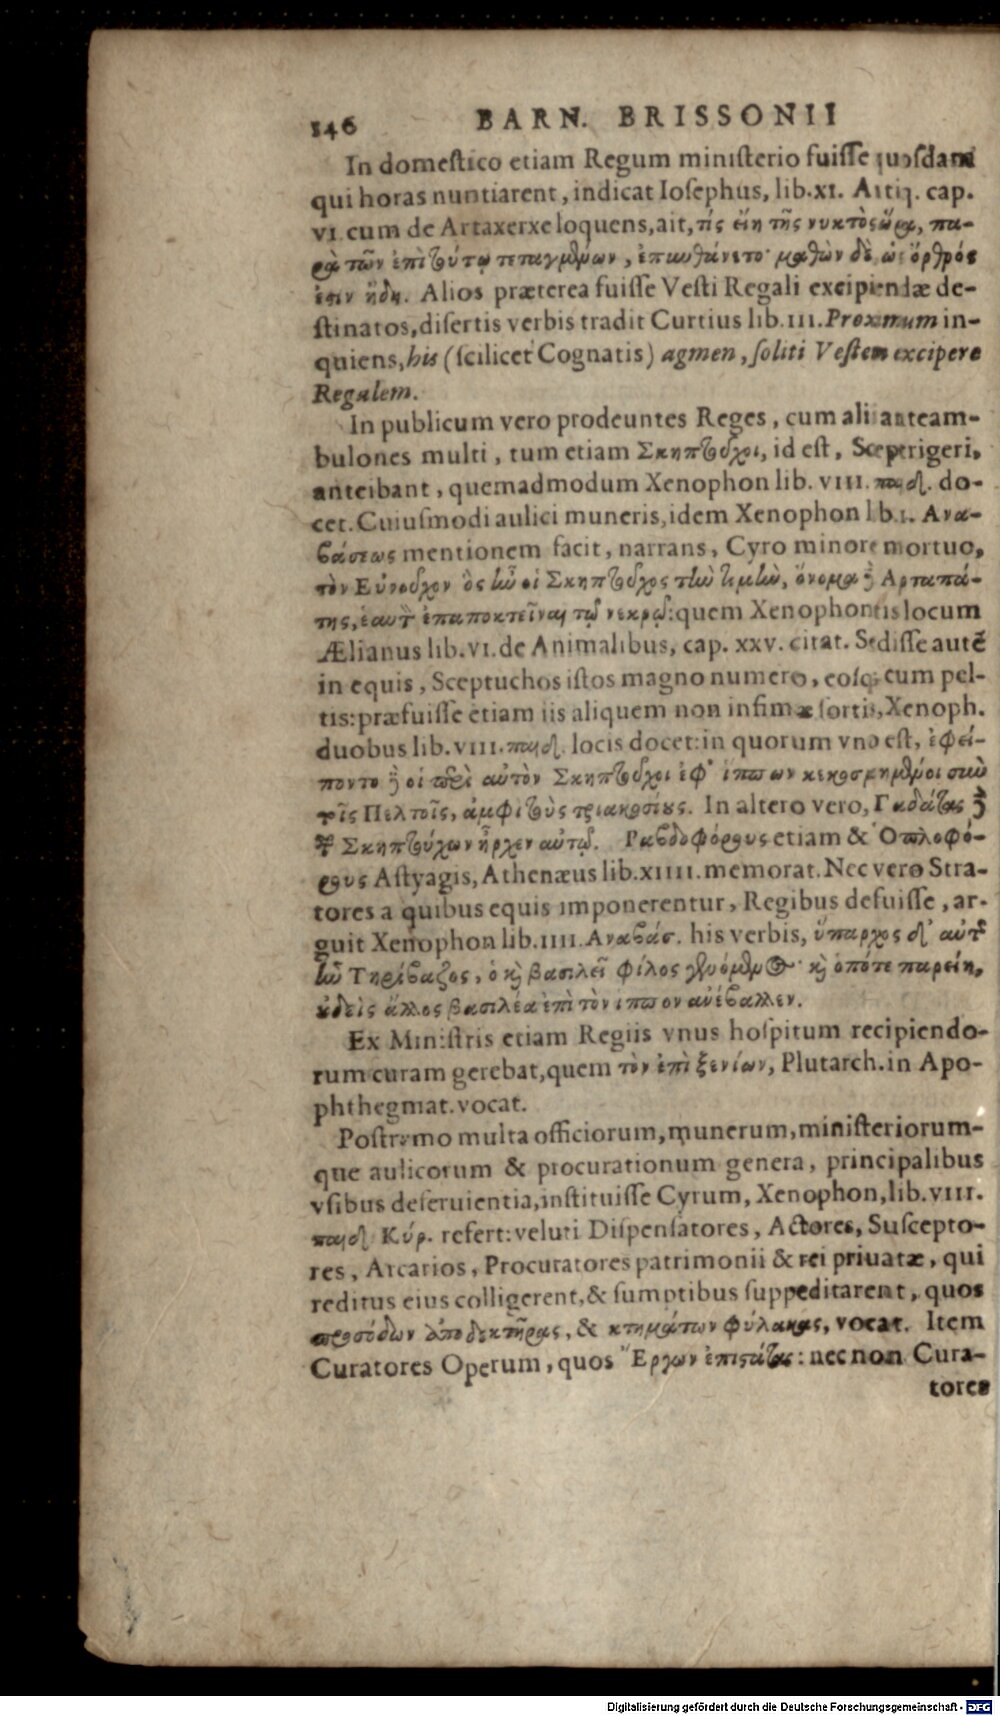 146 BARN. BRISSONII
In domestico etiam Regum ministerio fuisse quosdam
qui horas nuntiarent, indicat Iosephus, lib. XI. Antiq. cap.
VI. cum de Artaxerxe loquens, ait, τίς εἴη τῆς νυκτὸς ὥρα, πα-
ρὰ τῶν ἐπὶ τούτῳ τεταγμένων, ἐπυνθάνετο· μαθὼν δὲ ὡς ὄρθρός
ἐστιν ἤδη. Alios præterea fuisse Vesti Regali excipiendæ de-
stinatos, disertis verbis tradit Curtius lib. III. Proximum in-
quiens, his (scilicet Cognatis) agmen, soliti Vestem excipere
Regalem.
In publicum vero prodeuntes Reges, cum alii anteam-
bulones multi, tum etiam Σκηπτοῦχοι, id est, Sceptrigeri,
anteibant, quemadmodum Xenophon lib. VIII. παιδ. do-
cet. Cuiusmodi aulici muneris, idem Xenophon lib. I. Ανα-
βάσεως mentionem facit, narrans, Cyro minore mortuo,
τὸν Εὐνοῦχον ὃς ἦν οἱ Σκηπτοῦχος τὴν τιμὴν, ὄνομα δὲ Αρταπά-
της, ἑαυτὸν ἐπαποκτεῖναι τῷ νεκρῷ: quem Xenophontis locum
Ælianus lib. VI. de Animalibus, cap. XXV. citat. Sedisse autē
in equis, Sceptuchos istos magno numero, eosq; cum pel-
tis: præfuisse etiam iis aliquem non infimæ sortis, Xenoph.
duobus lib. VIII. παιδ. locis docet: in quorum vno est, ἐφεί-
ποντο δὲ οἱ περὶ αὐτὸν Σκηπτοῦχοι ἐφ' ἵππων κεκοσμημένοι σὺν
τοῖς Πελτοῖς, ἀμφὶ τοὺς τριακοσίους. In altero vero, Γαδάτας δὲ
τῶν Σκηπτούχων ἦρχεν αὐτῷ. Ραβδοφόρους etiam & Ὁπλοφό-
ρους Astyagis, Athenæus lib. XIIII. memorat. Nec vero Stra-
tores a quibus equis imponerentur, Regibus defuisse, ar-
guit Xenophon lib. IIII. Αναβάσ. his verbis, ὕπαρχος δ' αὐτῆς
ἦν Τηρίβαζος, ὁ καὶ βασιλεῖ φίλος γενόμενος· καὶ ὁπότε παρείη,
οὐδεὶς ἄλλος βασιλέα ἐπὶ τὸν ἵππον ἀνέβαλλεν.
Ex Ministris etiam Regiis vnus hospitum recipiendo-
rum curam gerebat, quem τὸν ἐπὶ ξενίων, Plutarch. in Apo-
phthegmat. vocat.
Postremo multa officiorum, munerum, ministeriorum-
que aulicorum & procurationum genera, principalibus
vsibus deseruientia, instituisse Cyrum, Xenophon, lib. VIII.
παιδ Κύρ. refert: veluti Dispensatores, Actores, Suscepto-
res, Arcarios, Procuratores patrimonii & rei priuatæ, qui
reditus eius colligerent, & sumptibus suppeditarent, quos
προσόδων ἀποδεκτῆρας, & κτημάτων φύλακας, vocat. Item
Curatores Operum, quos Ἔργων ἐπιστάτας: nec non Cura-
tores
Digitalisierung gefördert durch die Deutsche Forschungsgemeinschaft - DFG